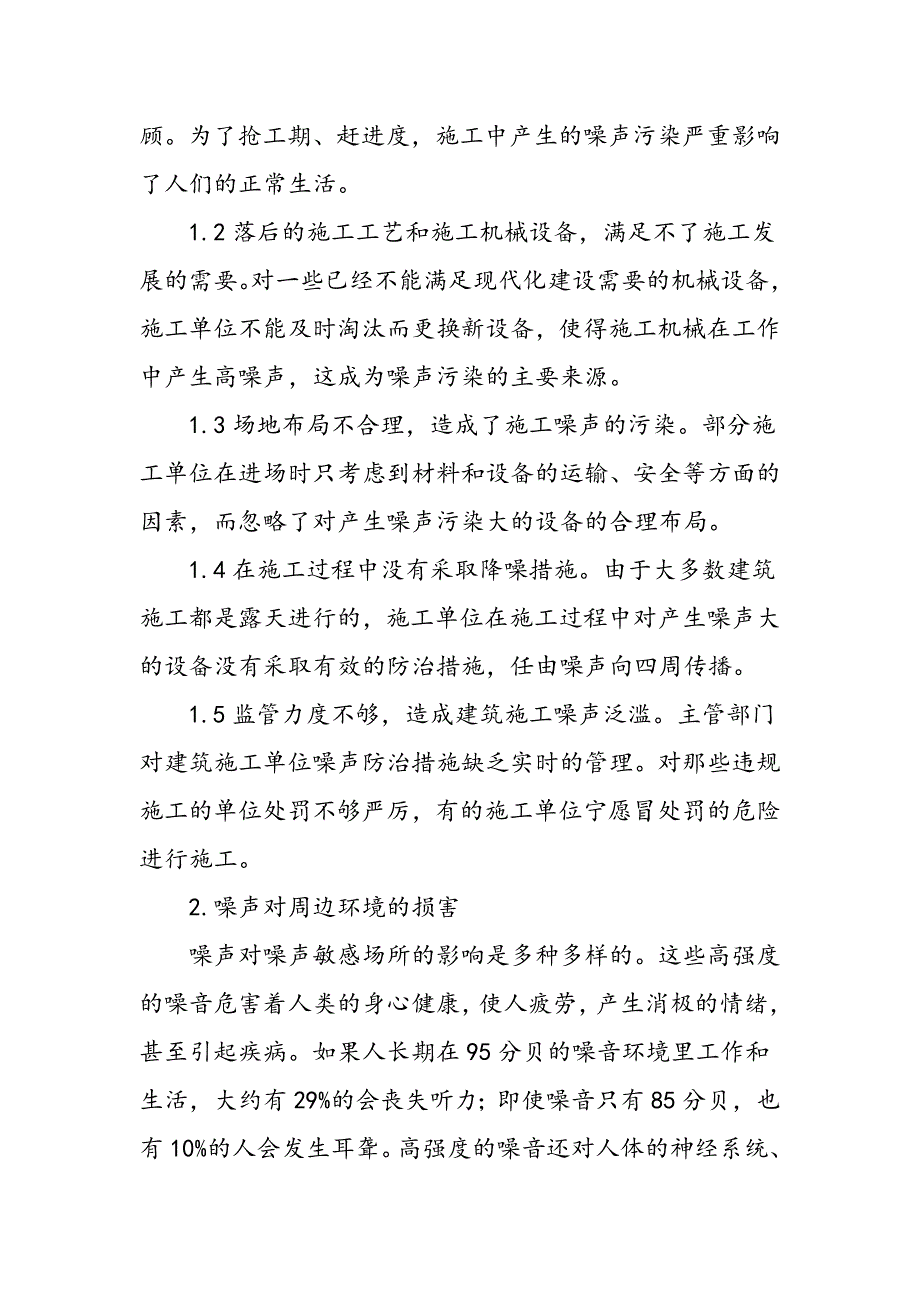 顾。为了抢工期、赶进度，施工中产生的噪声污染严重影响
了人们的正常生活。
1.2 落后的施工工艺和施工机械设备，满足不了施工发
展的需要。对一些已经不能满足现代化建设需要的机械设备，
施工单位不能及时淘汰而更换新设备，使得施工机械在工作
中产生高噪声，这成为噪声污染的主要来源。
1.3 场地布局不合理，造成了施工噪声的污染。部分施
工单位在进场时只考虑到材料和设备的运输、安全等方面的
因素，而忽略了对产生噪声污染大的设备的合理布局。
1.4 在施工过程中没有采取降噪措施。由于大多数建筑
施工都是露天进行的，施工单位在施工过程中对产生噪声大
的设备没有采取有效的防治措施，任由噪声向四周传播。
1.5 监管力度不够，造成建筑施工噪声泛滥。主管部门
对建筑施工单位噪声防治措施缺乏实时的管理。对那些违规
施工的单位处罚不够严厉，有的施工单位宁愿冒处罚的危险
进行施工。
2.噪声对周边环境的损害
噪声对噪声敏感场所的影响是多种多样的。这些高强度
的噪音危害着人类的身心健康，使人疲劳，产生消极的情绪，
甚至引起疾病。如果人长期在 95 分贝的噪音环境里工作和
生活，大约有 29%的会丧失听力；即使噪音只有 85 分贝，也
有 10%的人会发生耳聋。高强度的噪音还对人体的神经系统、